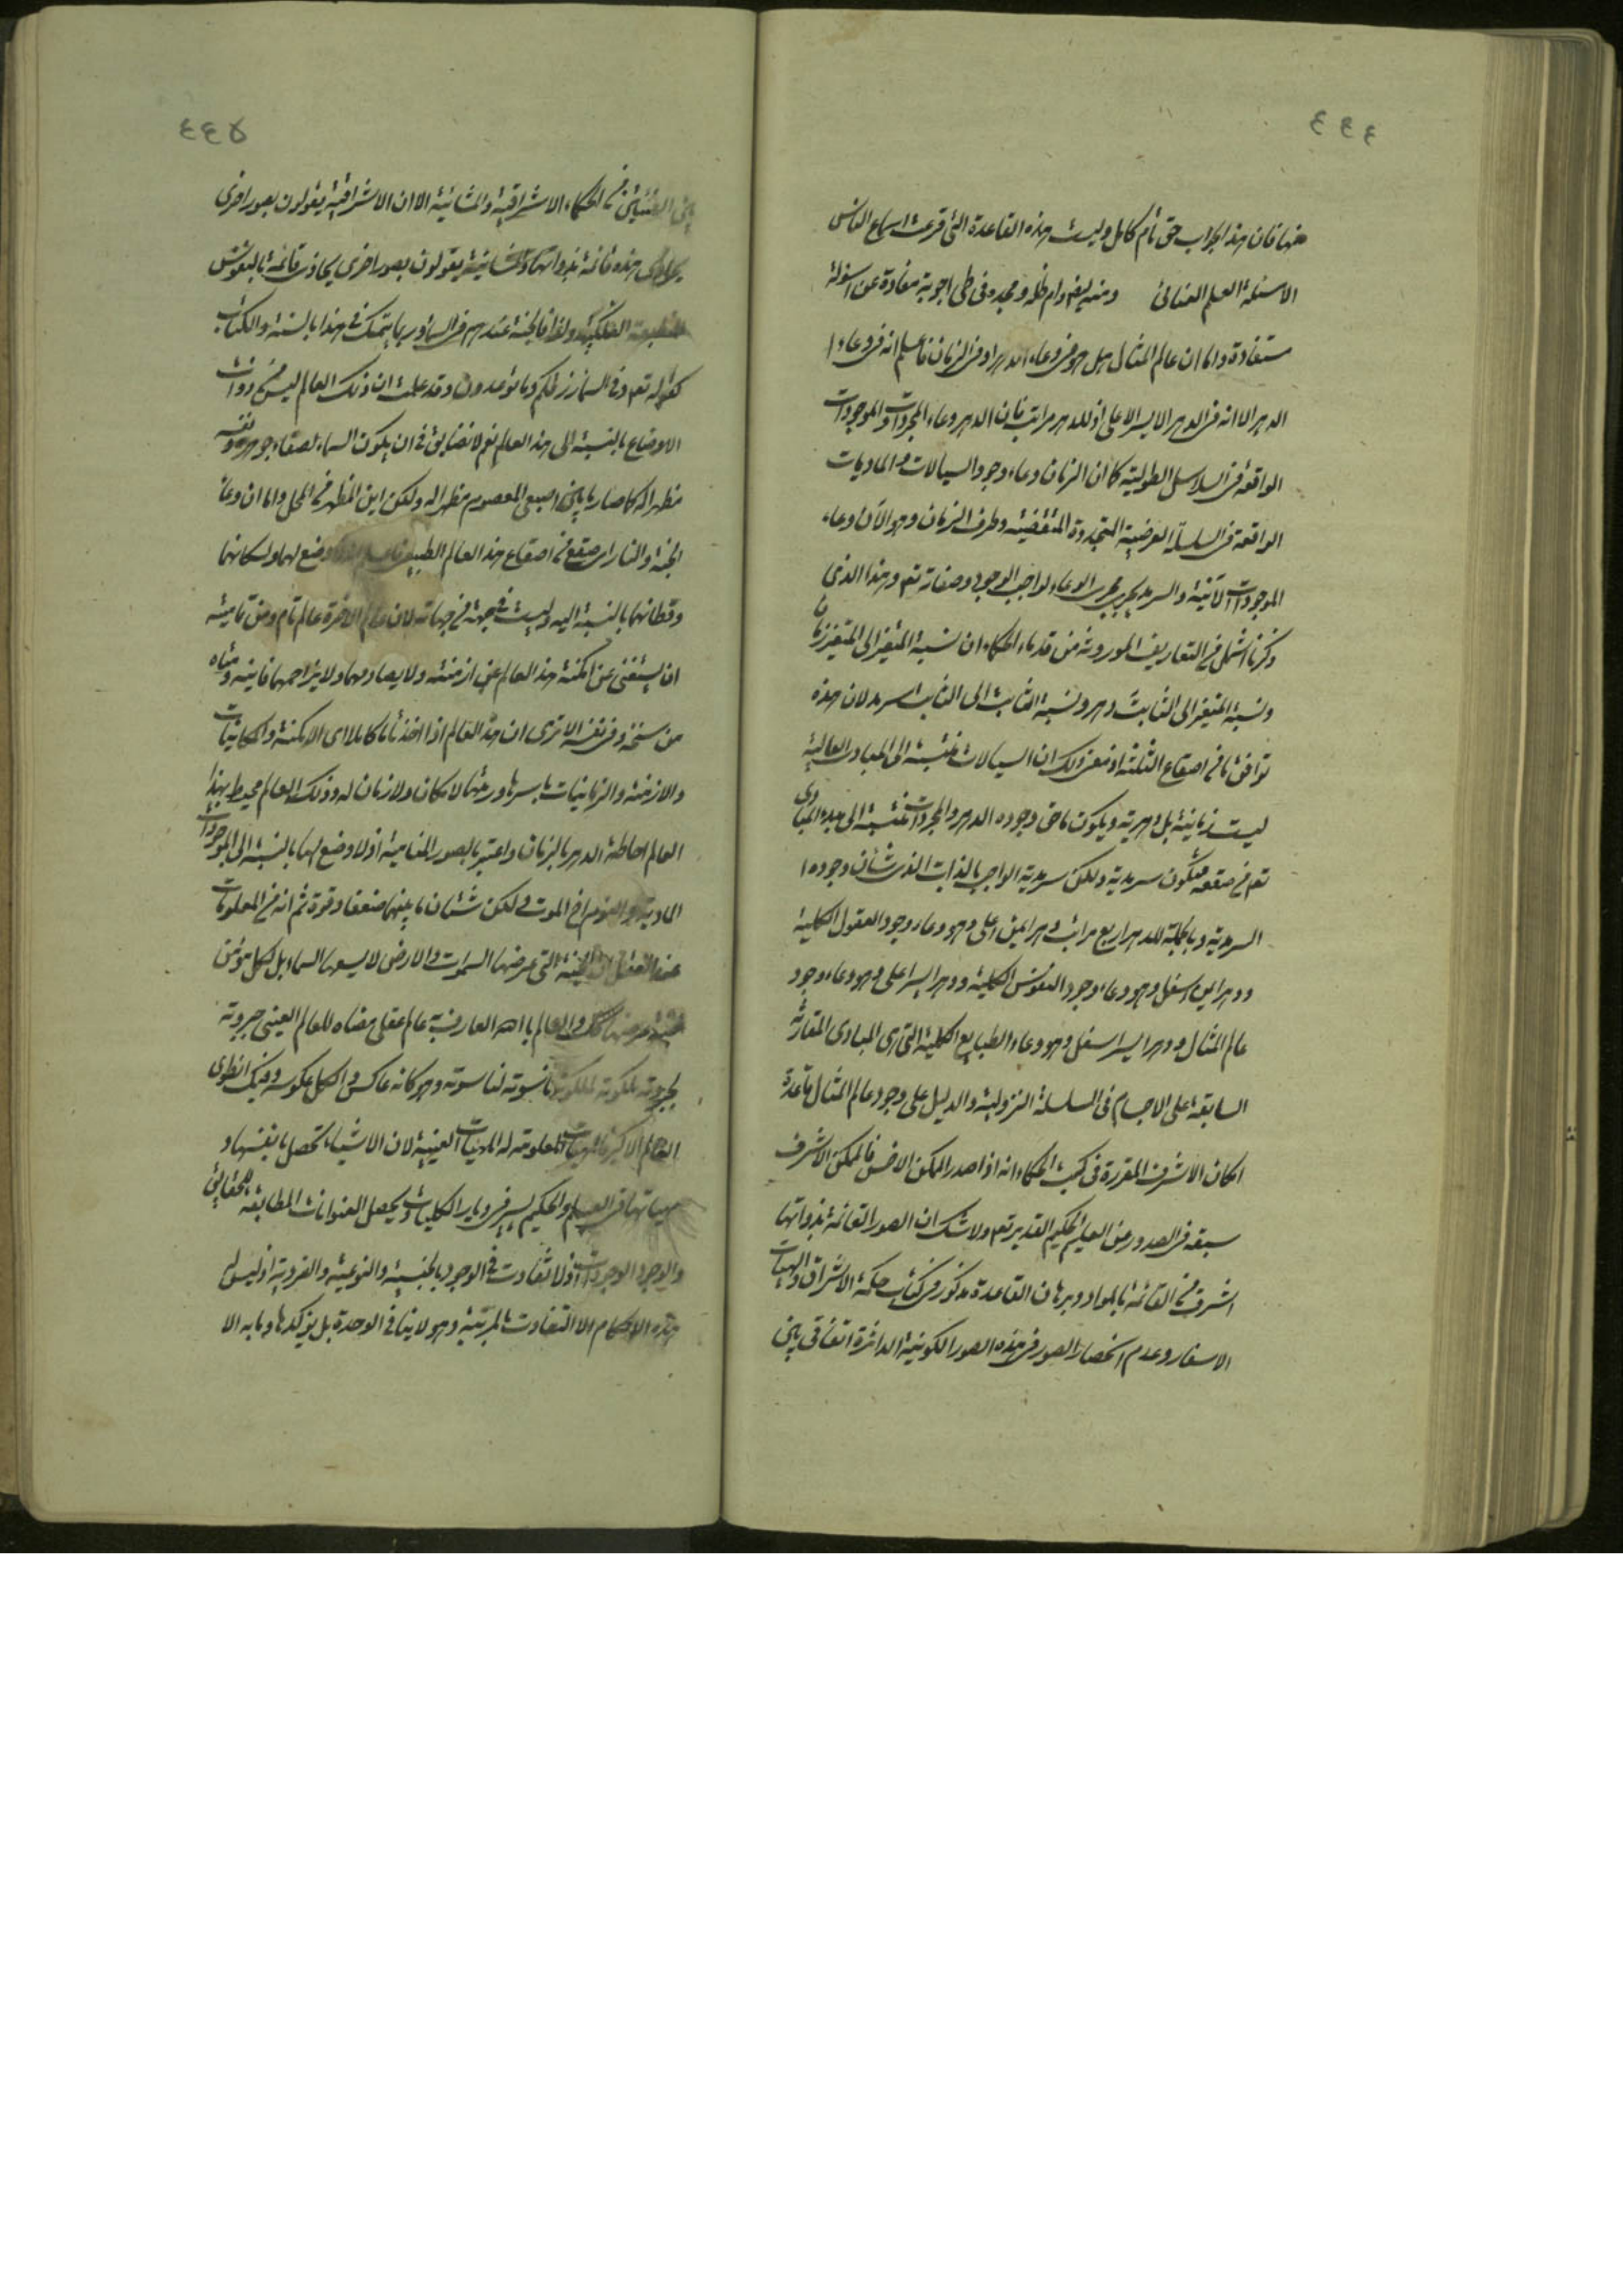 ٤٤٤
منها فان هذا الجواب حق تام كامل وليت هذه القاعدة التى قرعت اسماع الناس
الاسئلة العلم العنائى ومنه ايضا دام ظله ومجده فى طى اجوبة مفادة عن اسولة
مستفادة واما ان عالم المثال هل هو فى وعاء الدهر او فى الزمان فاعلم انه فى وعاء
الدهر الا انه فى الدهر الايسر الاعلى اذ للدهر مراتب فان الدهر وعاء المجردات والموجودات
الواقعة فى السلاسل الطولية كما ان الزمان وعاء وجود السيالات والماديات
الواقعة فى السلسلة العرضية المتجددة المتقضية وطرف الزمان وهو الآن وعاء
الموجودات الآنية والسرمد يجرى مجرى الوعاء لواجب الوجود وصفاته تعم وهذا الذى
ذكرنا اشمل من التعاريف الموروثة من قدماء الحكماء ان نسبة المتغير الى المتغير زمان
ونسبة المتغير الى الثابت دهر ونسبة الثابت الى الثابت سرمد لان هذه
توافق ما فى اصقاع الثلثة اذ مغزى ذلك ان السيالات نسبته الى المبادى العالية
ليست زمانية بل دهرية ويكون ما فى وجوده الدهر والمجردات نسبته الى مبدء المبادى
تعم فى صقعه فتكون سرمدية ولكن سرمدية الواجب بالذات الذى شان وجوده
السرمدية وبالجملة للدهر اربع مراتب دهر ايمن اعلى وهو وعاء وجود العقول الكلية
ودهر ايمن اسفل وهو وعاء وجود النفوس الكلية ودهر ايسر اعلى وهو وعاء وجود
عالم المثال ودهر ايسر اسفل وهو وعاء الطبايع الكلية التى هى المبادى المقارنة
السابقة على الاجسام فى السلسلة النزولية والدليل على وجود عالم المثال قاعدة
امكان الاشرف المقررة فى كتب الحكماء انه اذا صدر الممكن الاخس فالممكن الاشرف
سبقه فى الصدور عن العليم الحكيم القدير تعم ولا شك ان الصور القائمة بذواتها
اشرف من القائمة بالمواد وبرهان القاعدة مذكور فى كتاب حكمة الاشراق والهيات
الاسفار وعدم انحصار الصور فى هذه الصور الكونية الداثرة اتفاقى بين
٤٤٥
بين الفئتين من الحكماء الاشراقية والمشائية الا ان الاشراقية يقولون بصور اخرى
يحاذى هذه قائمة بذواتها والمشائية يقولون بصور اخرى يحاذى قائمة بالنفوس
المنطبعة الفلكية ولذا فالجنة عندهم فى السماء وربما يتمسك فى هذا بالسنة والكتاب
كقوله تعم وفى السماء رزقكم وما توعدون وقد علمت ان ذلك العالم ليس من ذوات
الاوضاع بالنسبة الى هذا العالم نعم لا نضايق فى ان يكون السماء لصفاء جوهره ونفسه
مظهرا له كما صار ما بين اصبعى المعصوم مظهرا له ولكن اين المظهر من المحل واما ان وعاء
الجنة والنار اى صقع من اصقاع هذا العالم الطبيعى فاعلم انه لا وضع لهما ولسكانهما
وقطانهما بالنسبة اليه وليست فى جهة من جهاته لان عالم الآخرة عالم تام ومن تماميته
ان يستغنى عن امكنة هذا العالم عن ازمنته ولا يصادمها ولا يزاحمها فاينه ومتاه
من سنخه وفى نفسه الا ترى ان هذا العالم اذا اخذ تاما كاملا اى الامكنة والمكانيات
والازمنة والزمانيات باسرها ورمتها لا مكان ولا زمان له وذلك العالم محيط بهذا
العالم احاطة الدهر بالزمان واعتبر بالصور المنامية اذ لا وضع لها بالنسبة الى الموجودات
المادية والنوم اخ الموت ولكن شتان ما بينهما ضعفا وقوة ثم انه من المعلومات
عند العقل ان الجنة التى عرضها السموات والارض لا يسعها السماء بل لكل مؤمن
جنة عرضها كذلك والعالم بالله العارف به عالم عقلى مضاه للعالم العينى جبروته
لجبروته ملكوته لملكوته ناسوته لناسوته وهو كانه عاكس والكل عكوسه وفيك انطوى
العالم الاكبر فالمهيات المعلومة له المهيات العينية لان الاشياء تحصل بانفسها و
مهياتها فى العلم والحكيم يسير فى ديار الكليات ويحصل العنوانات المطابقة للحقائق
والوجود الوجودات اذ لا تفاوت فى الوجود بالجنسية والنوعية والفردية اذ ليس له
هذه الاحكام الا التفاوت بالمرتبة وهو لا ينافى الوحدة بل يؤكدها وما به الا